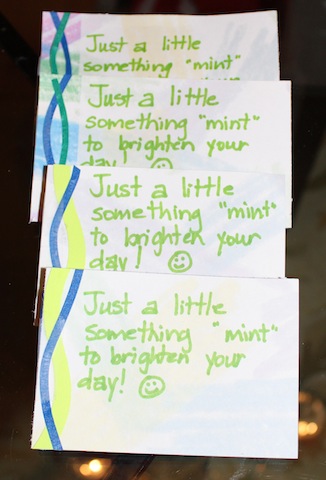 Just a little
something "mint"
Just a little
something "mint"
to brighten your
day!
Just a little
something "mint"
to brighten your
day! ☺
Just a little
something "mint"
to brighten your
day! ☺